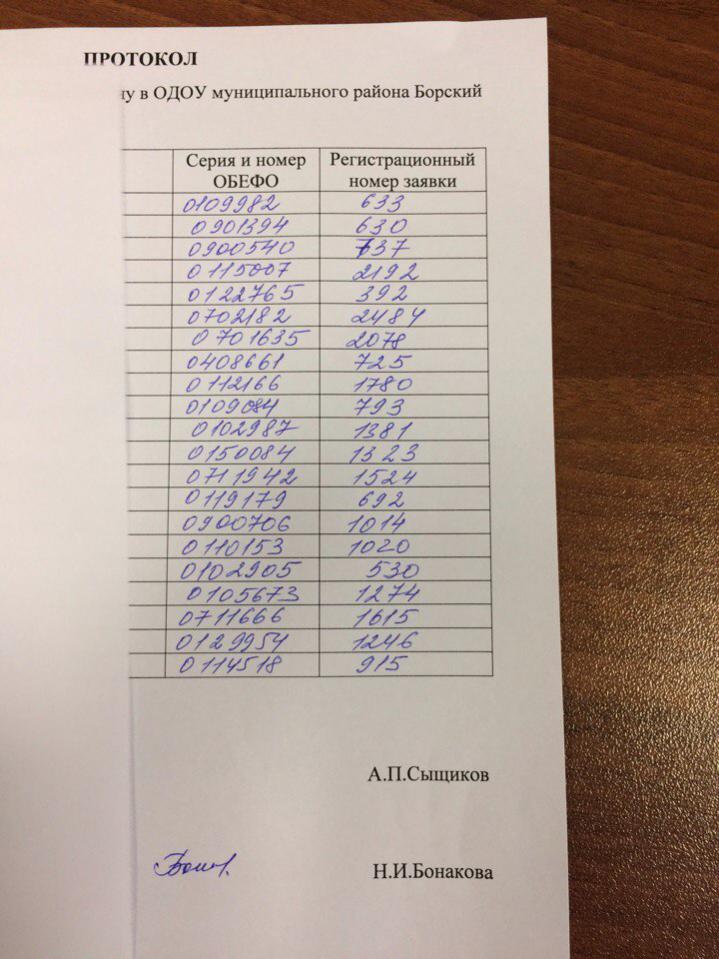 ПРОТОКОЛ
ну в ОДОУ муниципального района Борский
Серия и номер ОБЕФО Регистрационный номер заявки
0109982 633
0901394 630
0900540 737
0115007 2192
0122765 392
0702182 2484
0701635 2078
0408661 725
0112166 1780
0109084 793
0102987 1381
0150084 1323
0711942 1524
0119179 692
0900706 1014
0110153 1020
0102905 530
0105673 1274
0711666 1615
0129954 1246
0114518 915
А.П.Сыщиков
Н.И.Бонакова